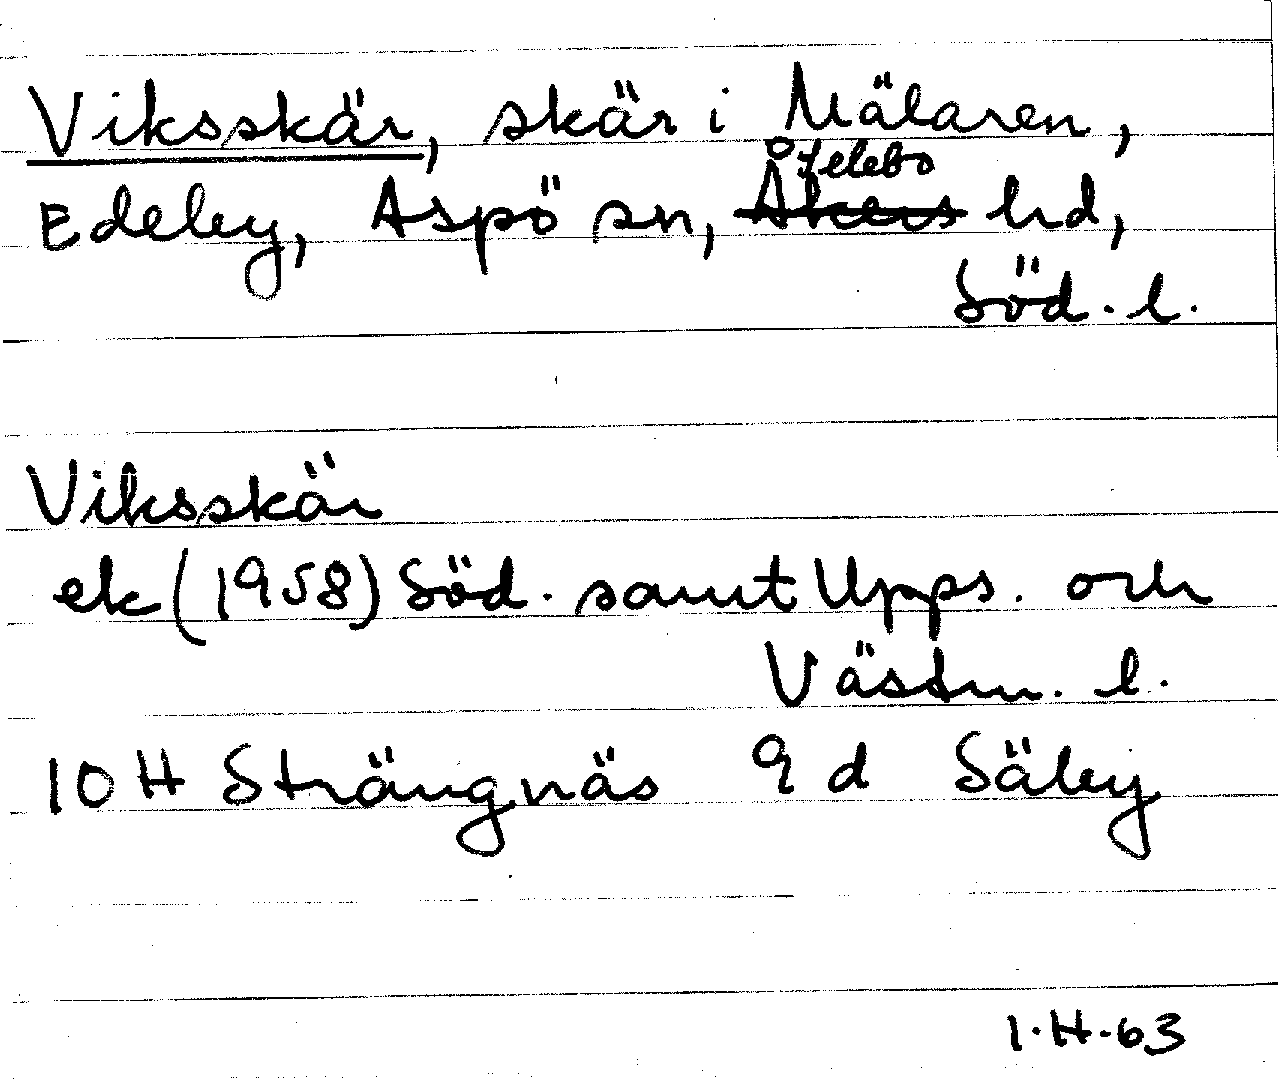 Viksskär, skär i Mälaren,
Edeby, Aspö sn, Åkers hd,
Söd. l.
Viksskär
ek (1958) Söd. samt Upps. och
Västm. l.
10 H Strängnäs 9 d Säby
1·H·63